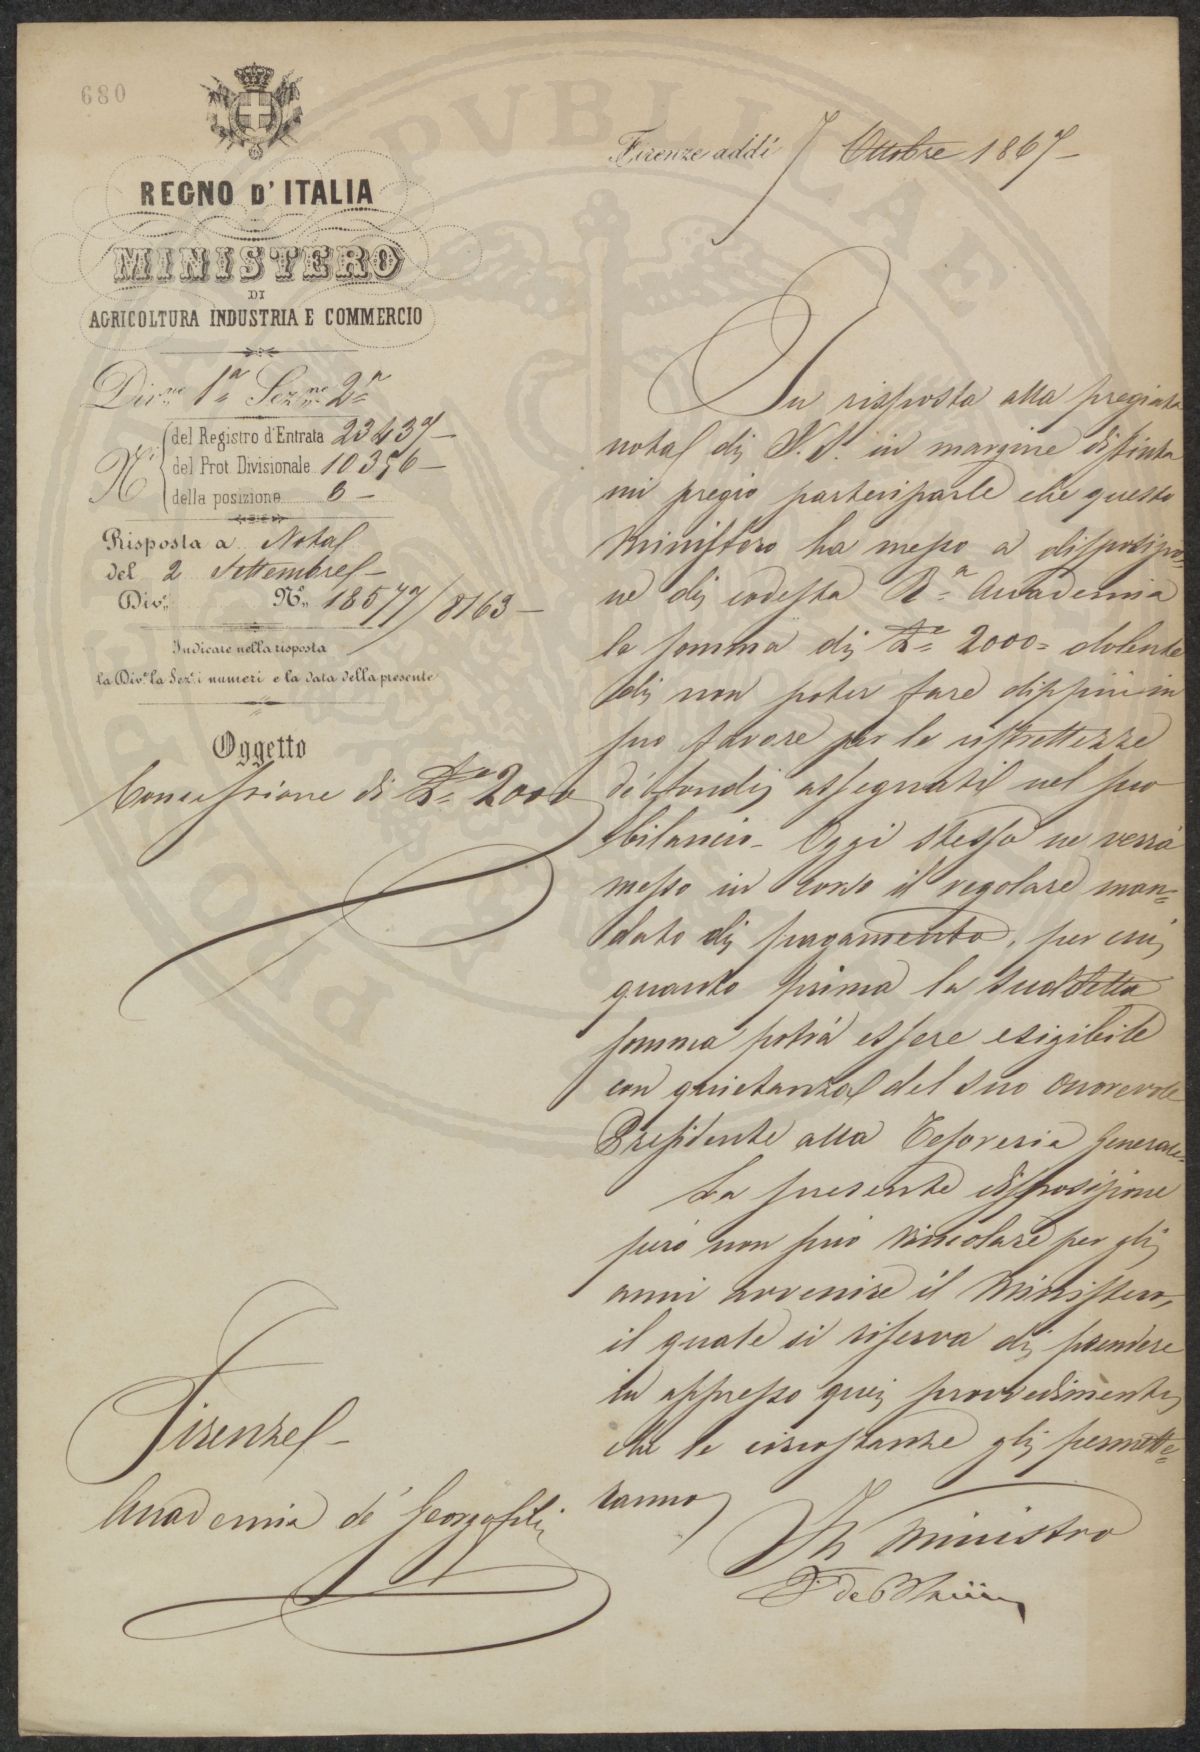 680
REGNO D'ITALIA
MINISTERO
DI
AGRICOLTURA INDUSTRIA E COMMERCIO
Div.ne 1a Sez.ne 2a
N.i
del Registro d'Entrata 23437
del Prot. Divisionale 10356
della posizione 6
Risposta a Nota
del 2 Settembre
Div.e N.° 18577/8163
Indicare nella risposta
la Div.e la Sez.e i numeri e la data della presente
Oggetto
Concessione di L.e 2000
Firenze addì 7 Ottobre 1867
In risposta alla pregiata
nota di V.S. in margine distinta
mi pregio parteciparle che questo
Ministero ha messo a disposizio-
ne di codesta R.a Accademia
la somma di L.e 2000= dolente
di non poter fare dippiù in
suo favore per le ristrettezze
de' fondi assegnati nel suo
bilancio. Oggi stesso ne verrà
messo in corso il regolare man-
dato di pagamento, per cui
quanto prima la suddetta
somma potrà essere esigibile
con quietanza del suo Onorevole
Presidente alla Tesoreria Generale.
La presente disposizione
però non può vincolare per gli
anni avvenire il Ministero,
il quale si riserva di prendere
in appresso quei provvedimenti
che le circostanze gli permette-
ranno
Il Ministro
F. de Blasiis
Firenze
Accademia de' Georgofili
PUBLICAE